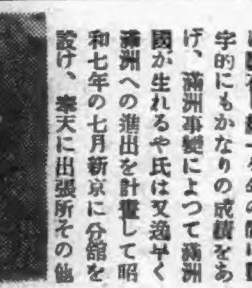 字的にもかなりの成績をあ
げ、滿洲事變によつて滿洲
國が生れるや氏は又逸早く
滿洲への進出を計畫して昭
和七年の七月新京に分舘を
設け、奉天に出張所その他